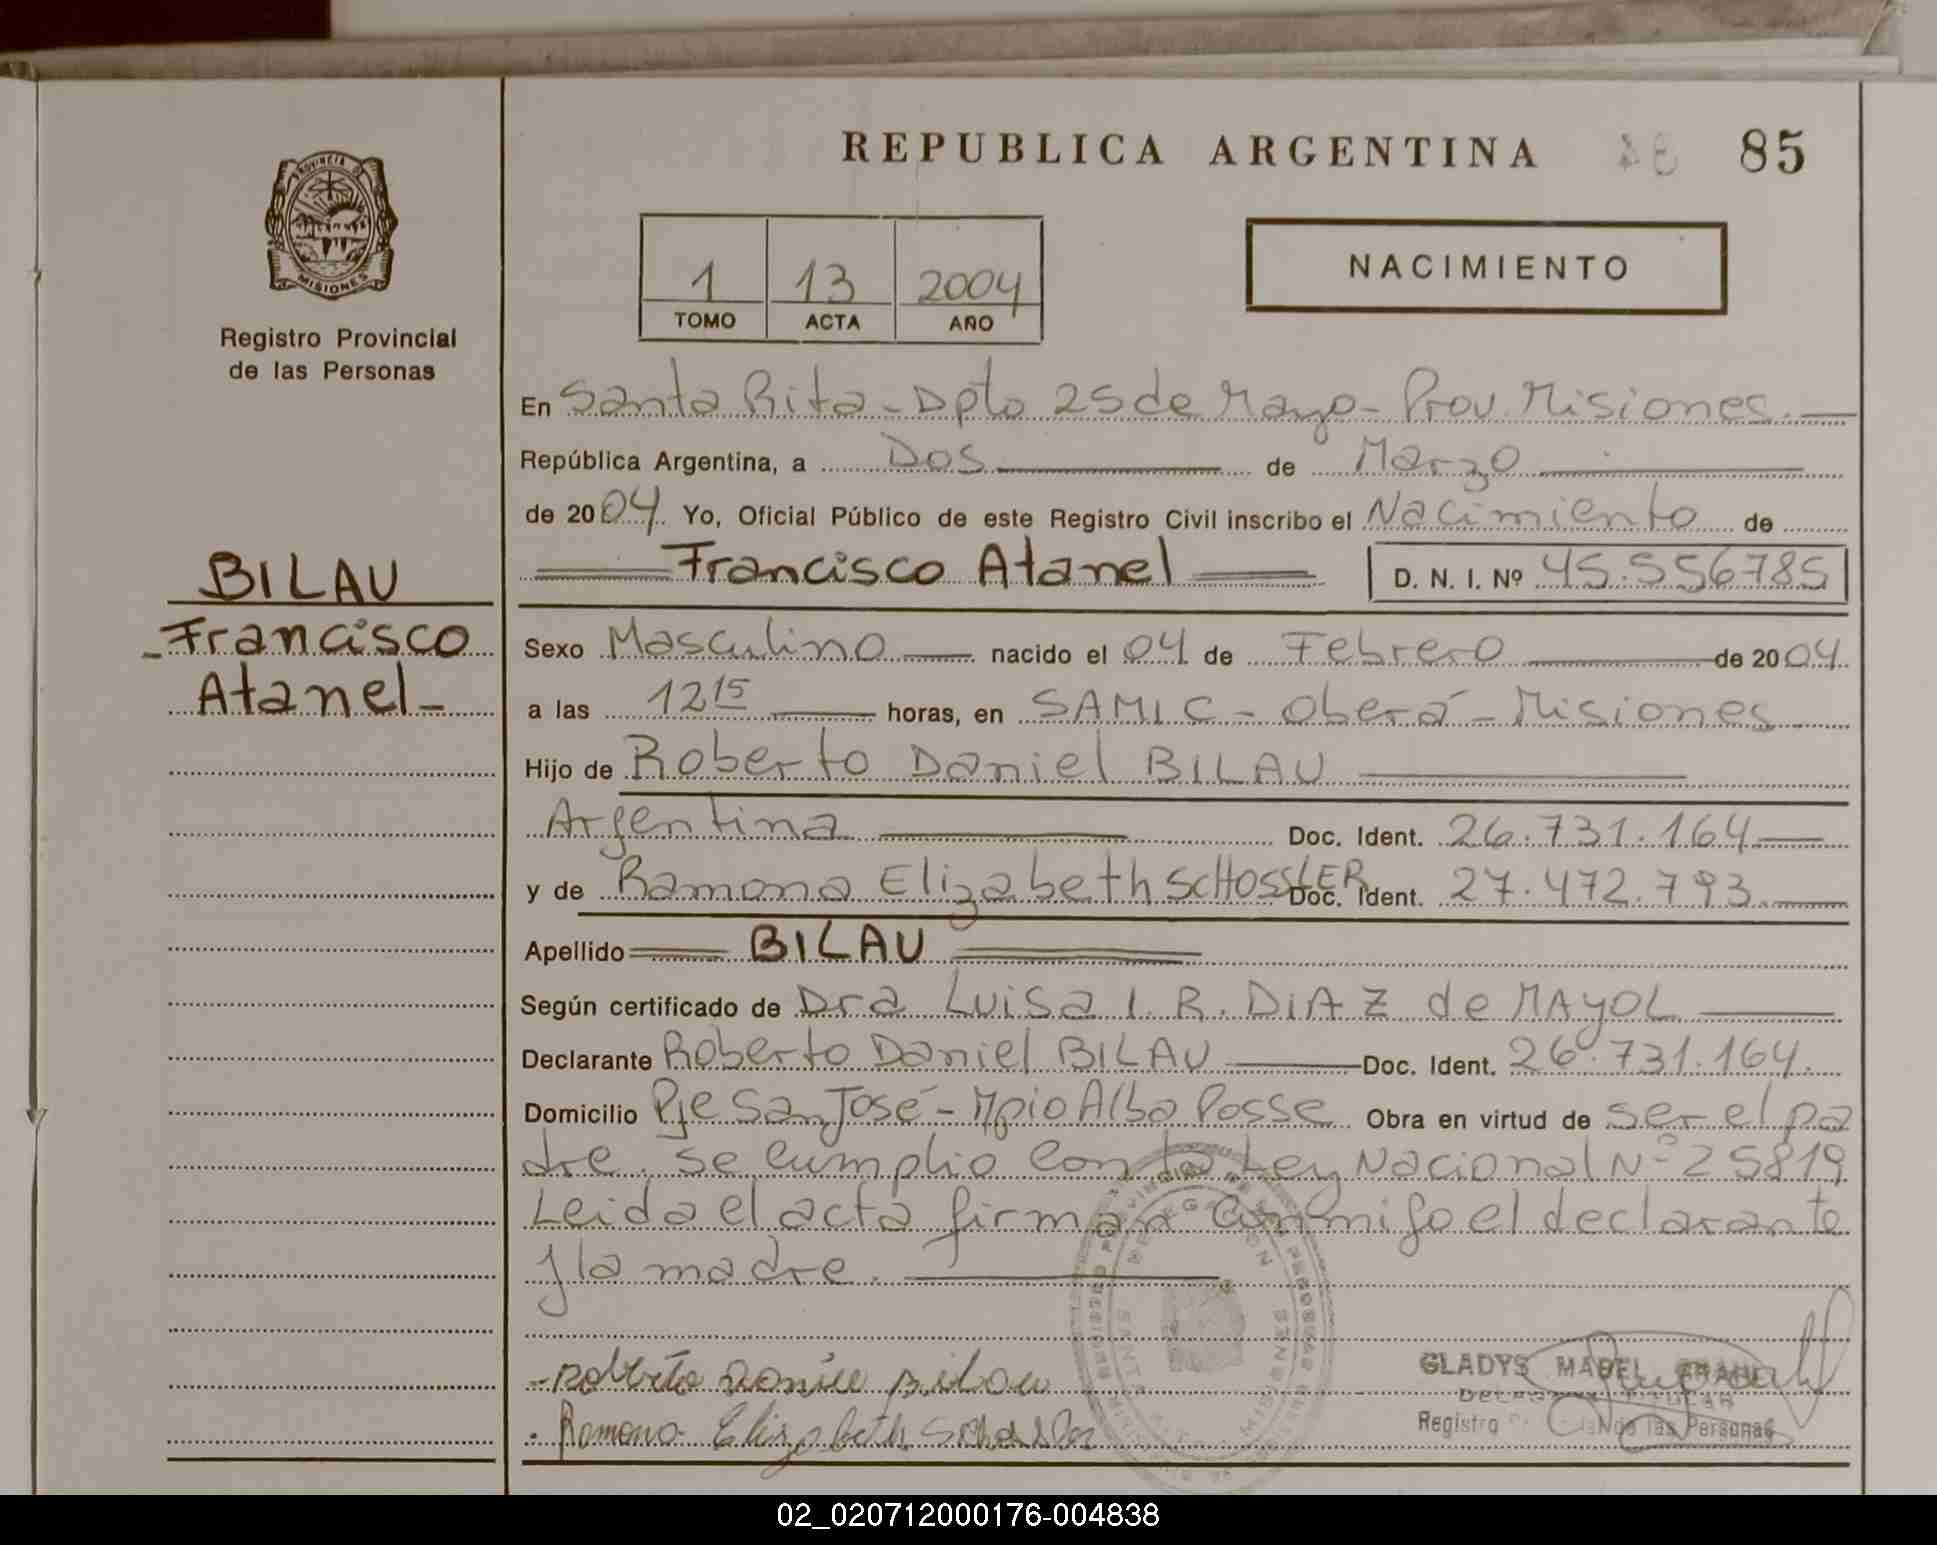 REPUBLICA ARGENTINA 85
PROVINCIA DE
MISIONES
Registro Provincial
de las Personas
1 13 2004
TOMO ACTA AÑO
NACIMIENTO
En Santa Rita - Dpto 25 de Mayo - Prov. Misiones.
República Argentina, a Dos de Marzo
de 2004. Yo, Oficial Público de este Registro Civil inscribo el Nacimiento de
BILAU
Francisco
Atanel
Francisco Atanel D. N. I. Nº 45.556785
Sexo Masculino nacido el 04 de Febrero de 2004.
a las 12 15 horas, en SAMIC - Oberá - Misiones
Hijo de Roberto Daniel BILAU
Argentina Doc. Ident. 26.731.164
y de Ramona Elizabeth SCHOSSLER Doc. Ident. 27.472.793.
Apellido BILAU
Según certificado de Dra Luisa I. R. DIAZ de MAYOL
Declarante Roberto Daniel BILAU Doc. Ident. 26.731.164.
Domicilio Pje San José - Mpio Alba Posse Obra en virtud de ser el pa
dre. se cumplio con la Ley Nacional Nº 25819
Leida el acta firman conmigo el declarante
y la madre.
Ramona Elizabeth
GLADYS MABEL
Registro de las Personas
02_020712000176-004838